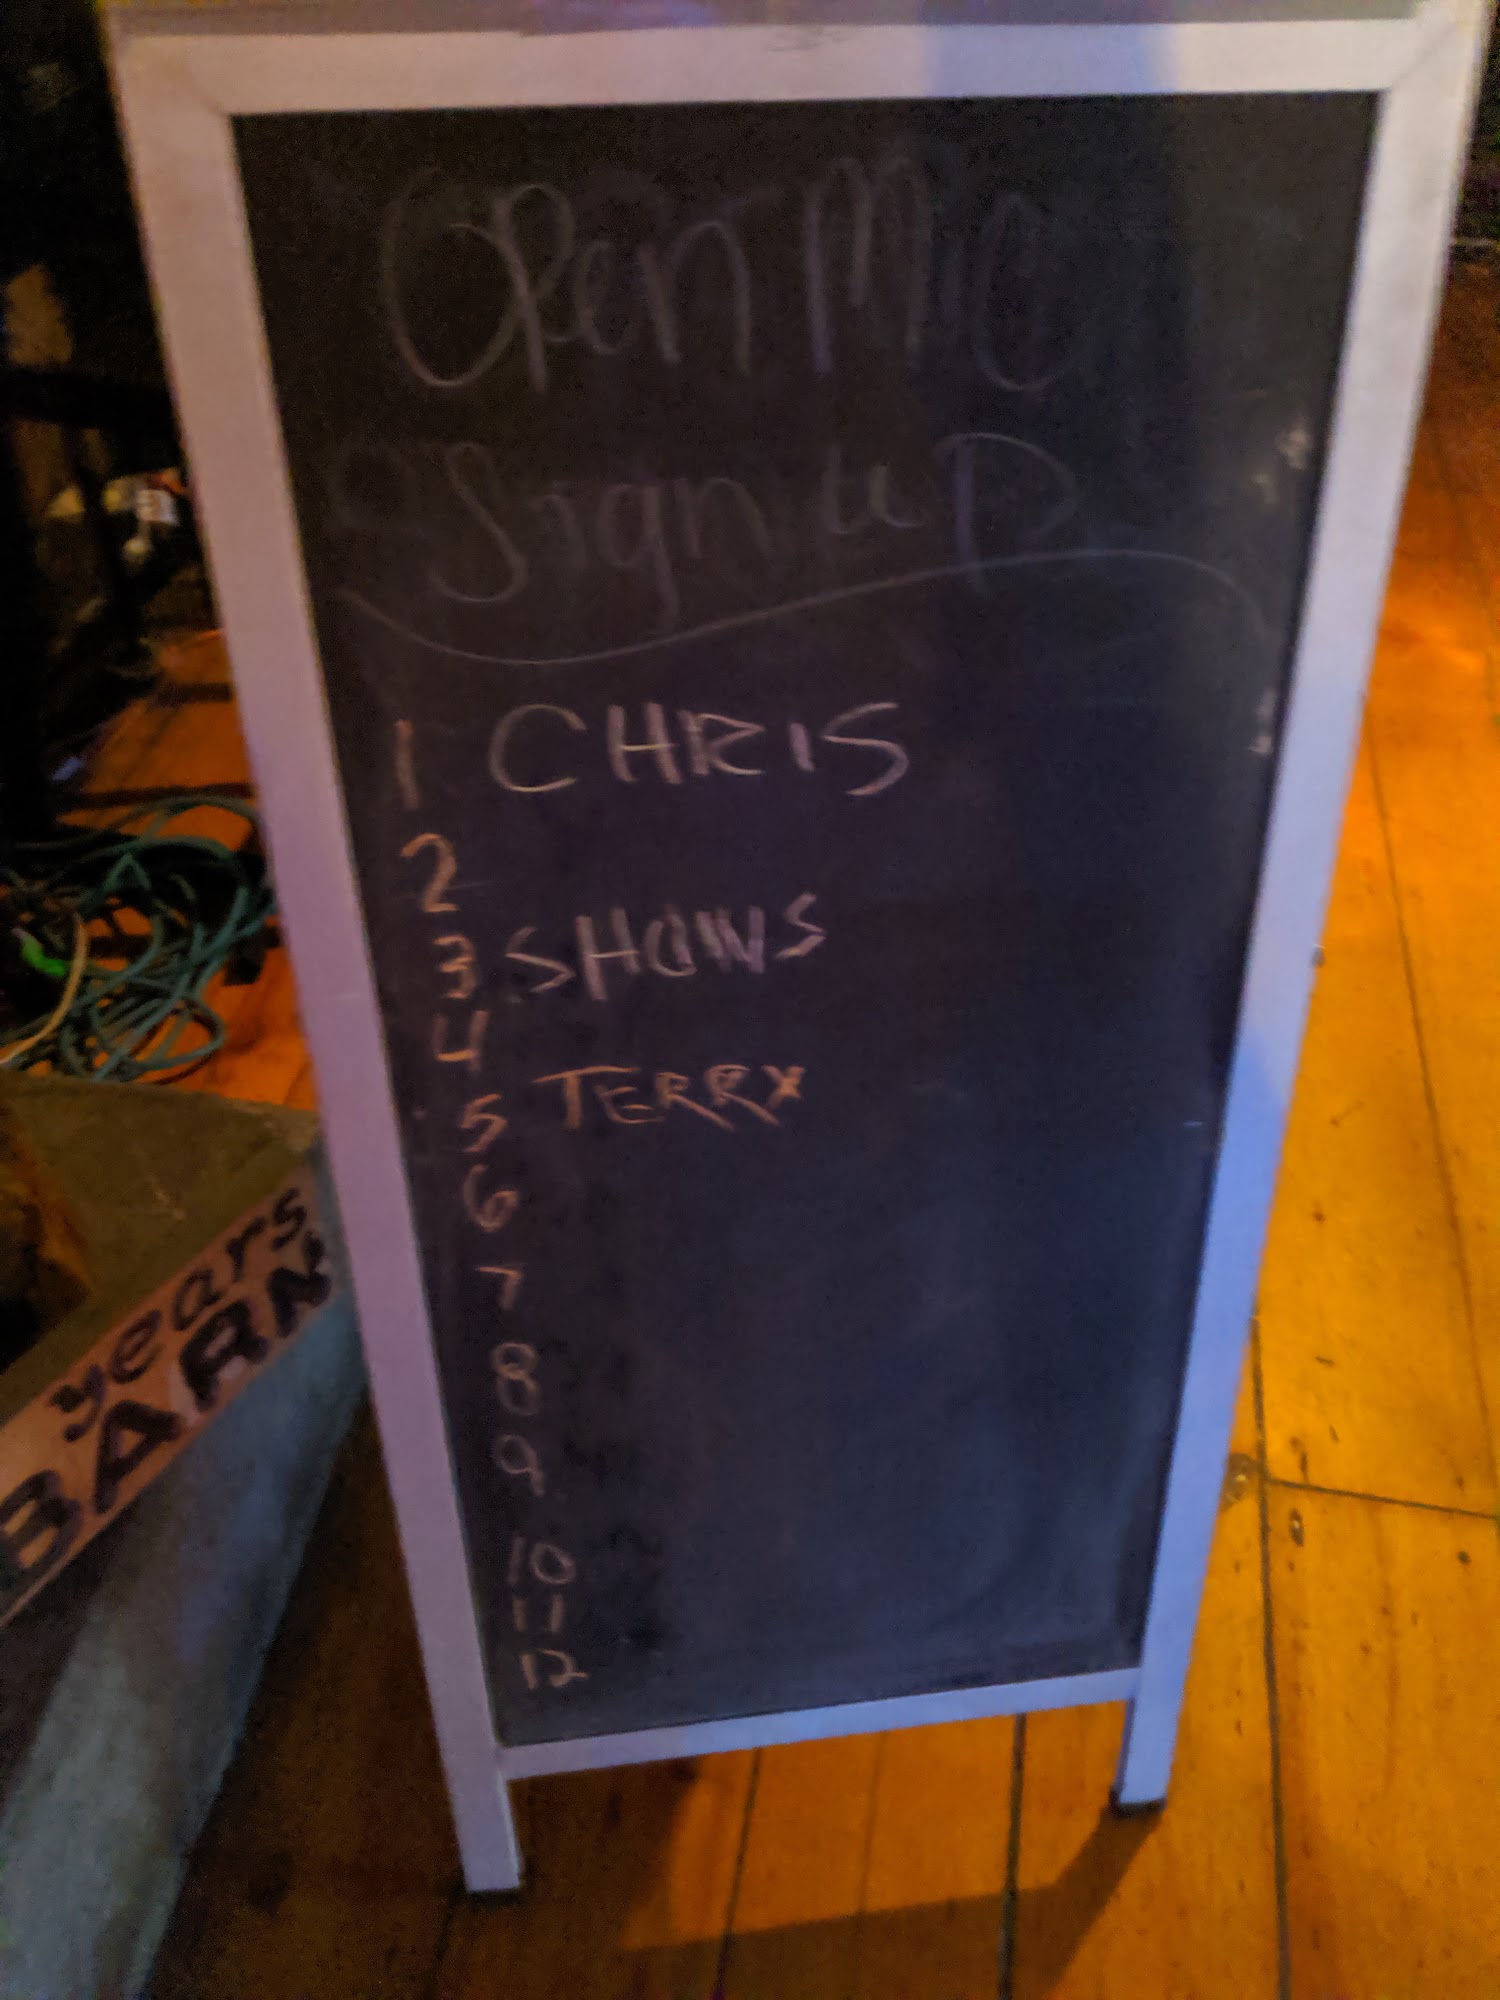 Open Mic
Sign up
1 CHRIS
2
3 SHAWNS
4
5 TERRY
6
7
8
9
10
11
12
years
BARN